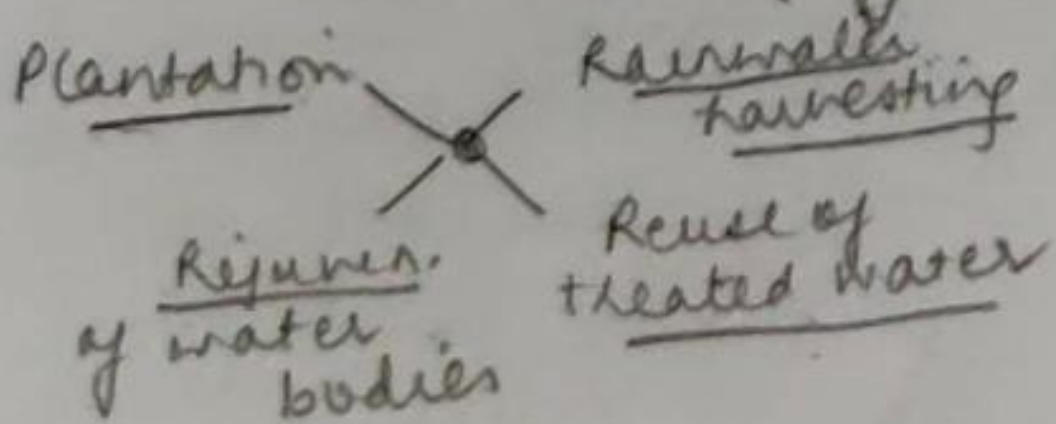 Plantation
Rainwater
harvesting
Rejuven.
of water
bodies
Reuse of
treated water